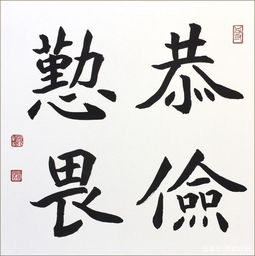 恭儉
懃畏